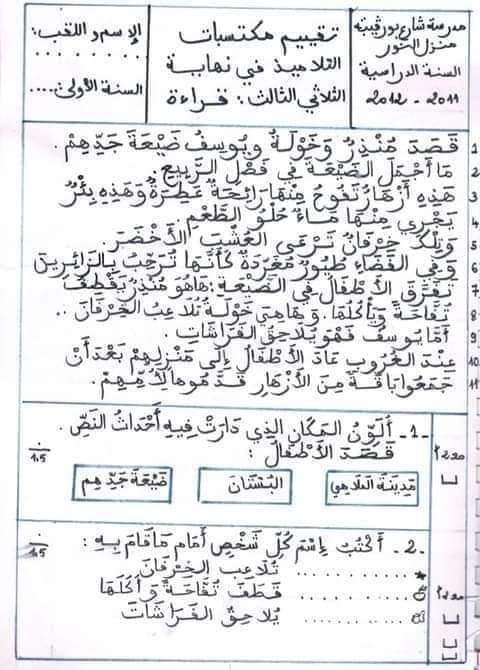 مدرسة شارع بورقيبة
منزل النور
السنة الدراسية
2011 - 2012
تقييم مكتسبات
التلاميذ في نهاية
الثلاثي الثالث: قراءة
الإسم و اللقب:
.........
السنة الأولى:....
1 قَصَدَ مُنْذِرُ وَخَوْلَةُ ويُوسفُ ضَيْعَةَ جَدِّهِمْ.
2 مَا أَجْمَلَ الضَّيْعَةَ فِي فَصْلِ الرَّبِيعِ.
3 هَذِهِ أَزْهَارٌ تَفُوحُ مِنْهَا رَائِحَةٌ عَطِرَةٌ وَهَذِهِ بِئْرٌ
4 يَجْرِي مِنْهَا مَاءٌ حُلْوُ الطَّعْمِ.
5 وَتِلْكَ خِرْفَانٌ تَرْعَى العُشْبَ الأَخْضَرَ.
6 وَفِي الفَضَاءِ طُيُورٌ مُغَرِّدَةٌ كَأَنَّهَا تُرَحِّبُ بِالزَّائِرِينَ
7 تَفَرَّقَ الأَطْفَالُ فِي الضَّيْعَةِ: هَاهُوَ مُنْذِرٌ يَقْطِفُ
8 تُفَّاحَةً وَيَأْكُلُهَا. وَهَاهِيَ خَوْلَةُ تُلَاعِبُ الخِرْفَانَ..
9 أَمَّا يُوسفُ فَهْوَ يُلَاحِقُ الفَرَاشَاتِ.
10 عِنْدَ الغُرُوبِ عَادَ الأَطْفَالُ إِلَى مَنْزِلِهِمْ بَعْدَ أَنْ
11 جَمَعُوا بَاقَةً مِنَ الأَزْهَارِ قَدَّمُوهَا لِأُمِّهِمْ.
1- أُلَوِّنُ المَكَانَ الذِي دَارَتْ فِيهِ أَحْدَاثُ النَصِّ.
قَصَدَ الأَطْفَالُ:
مَدِينَةَ المَلَاهِي
البُسْتَانَ
ضَيْعَةَ جَدِّهِم
1.5
2- أَكْتُبُ إِسْمَ كُلِّ شَخْصٍ أَمَامَ مَا قَامَ بِهِ:
.......... تُلَاعِبُ الخِرْفَانَ
.......... قَطَفَ تُفَّاحَةً وَأَكَلَهَا
.......... يُلَاحِقُ الفَرَاشَاتِ
1.5